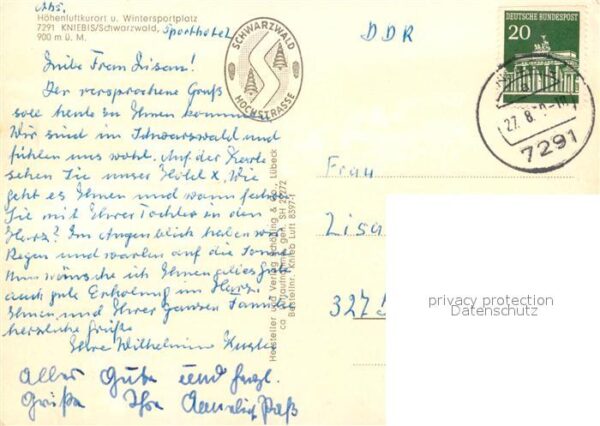 Abs.
Höhenluftkurort u. Wintersportplatz
7291 KNIEBIS/Schwarzwald, Sporthotel
900 m ü. M.
SCHWARZWALD
HOCHSTRASSE
Liebe Frau Lisan!
Der versprochene Gruß
soll heute zu Ihnen kommen.
Wir sind im Schwarzwald und
fühlen uns wohl. Auf der Karte
sehen Sie unser Hotel x. Wie
geht es Ihnen und wann fahren
Sie mit Ihrer Tochter in den
Harz? Im Augenblick haben wir
Regen und warten auf die Sonne
Nun wünsche ich Ihnen alles Gute
auch gute Erholung im Harz.
Ihnen und Ihrer ganzen Familie
herzliche Grüße
Ihre Wilhelmine
Alles Gute und herzl.
Grüße Ihre
Hersteller und Verlag Schöning & Co., Lübeck
Luftaufnahme gen. SH
Bestellnr. Knieb Luft 8597/1
DDR
DEUTSCHE BUNDESPOST
20
27.8.
7291
Frau
Lisa
327
privacy protection
Datenschutz